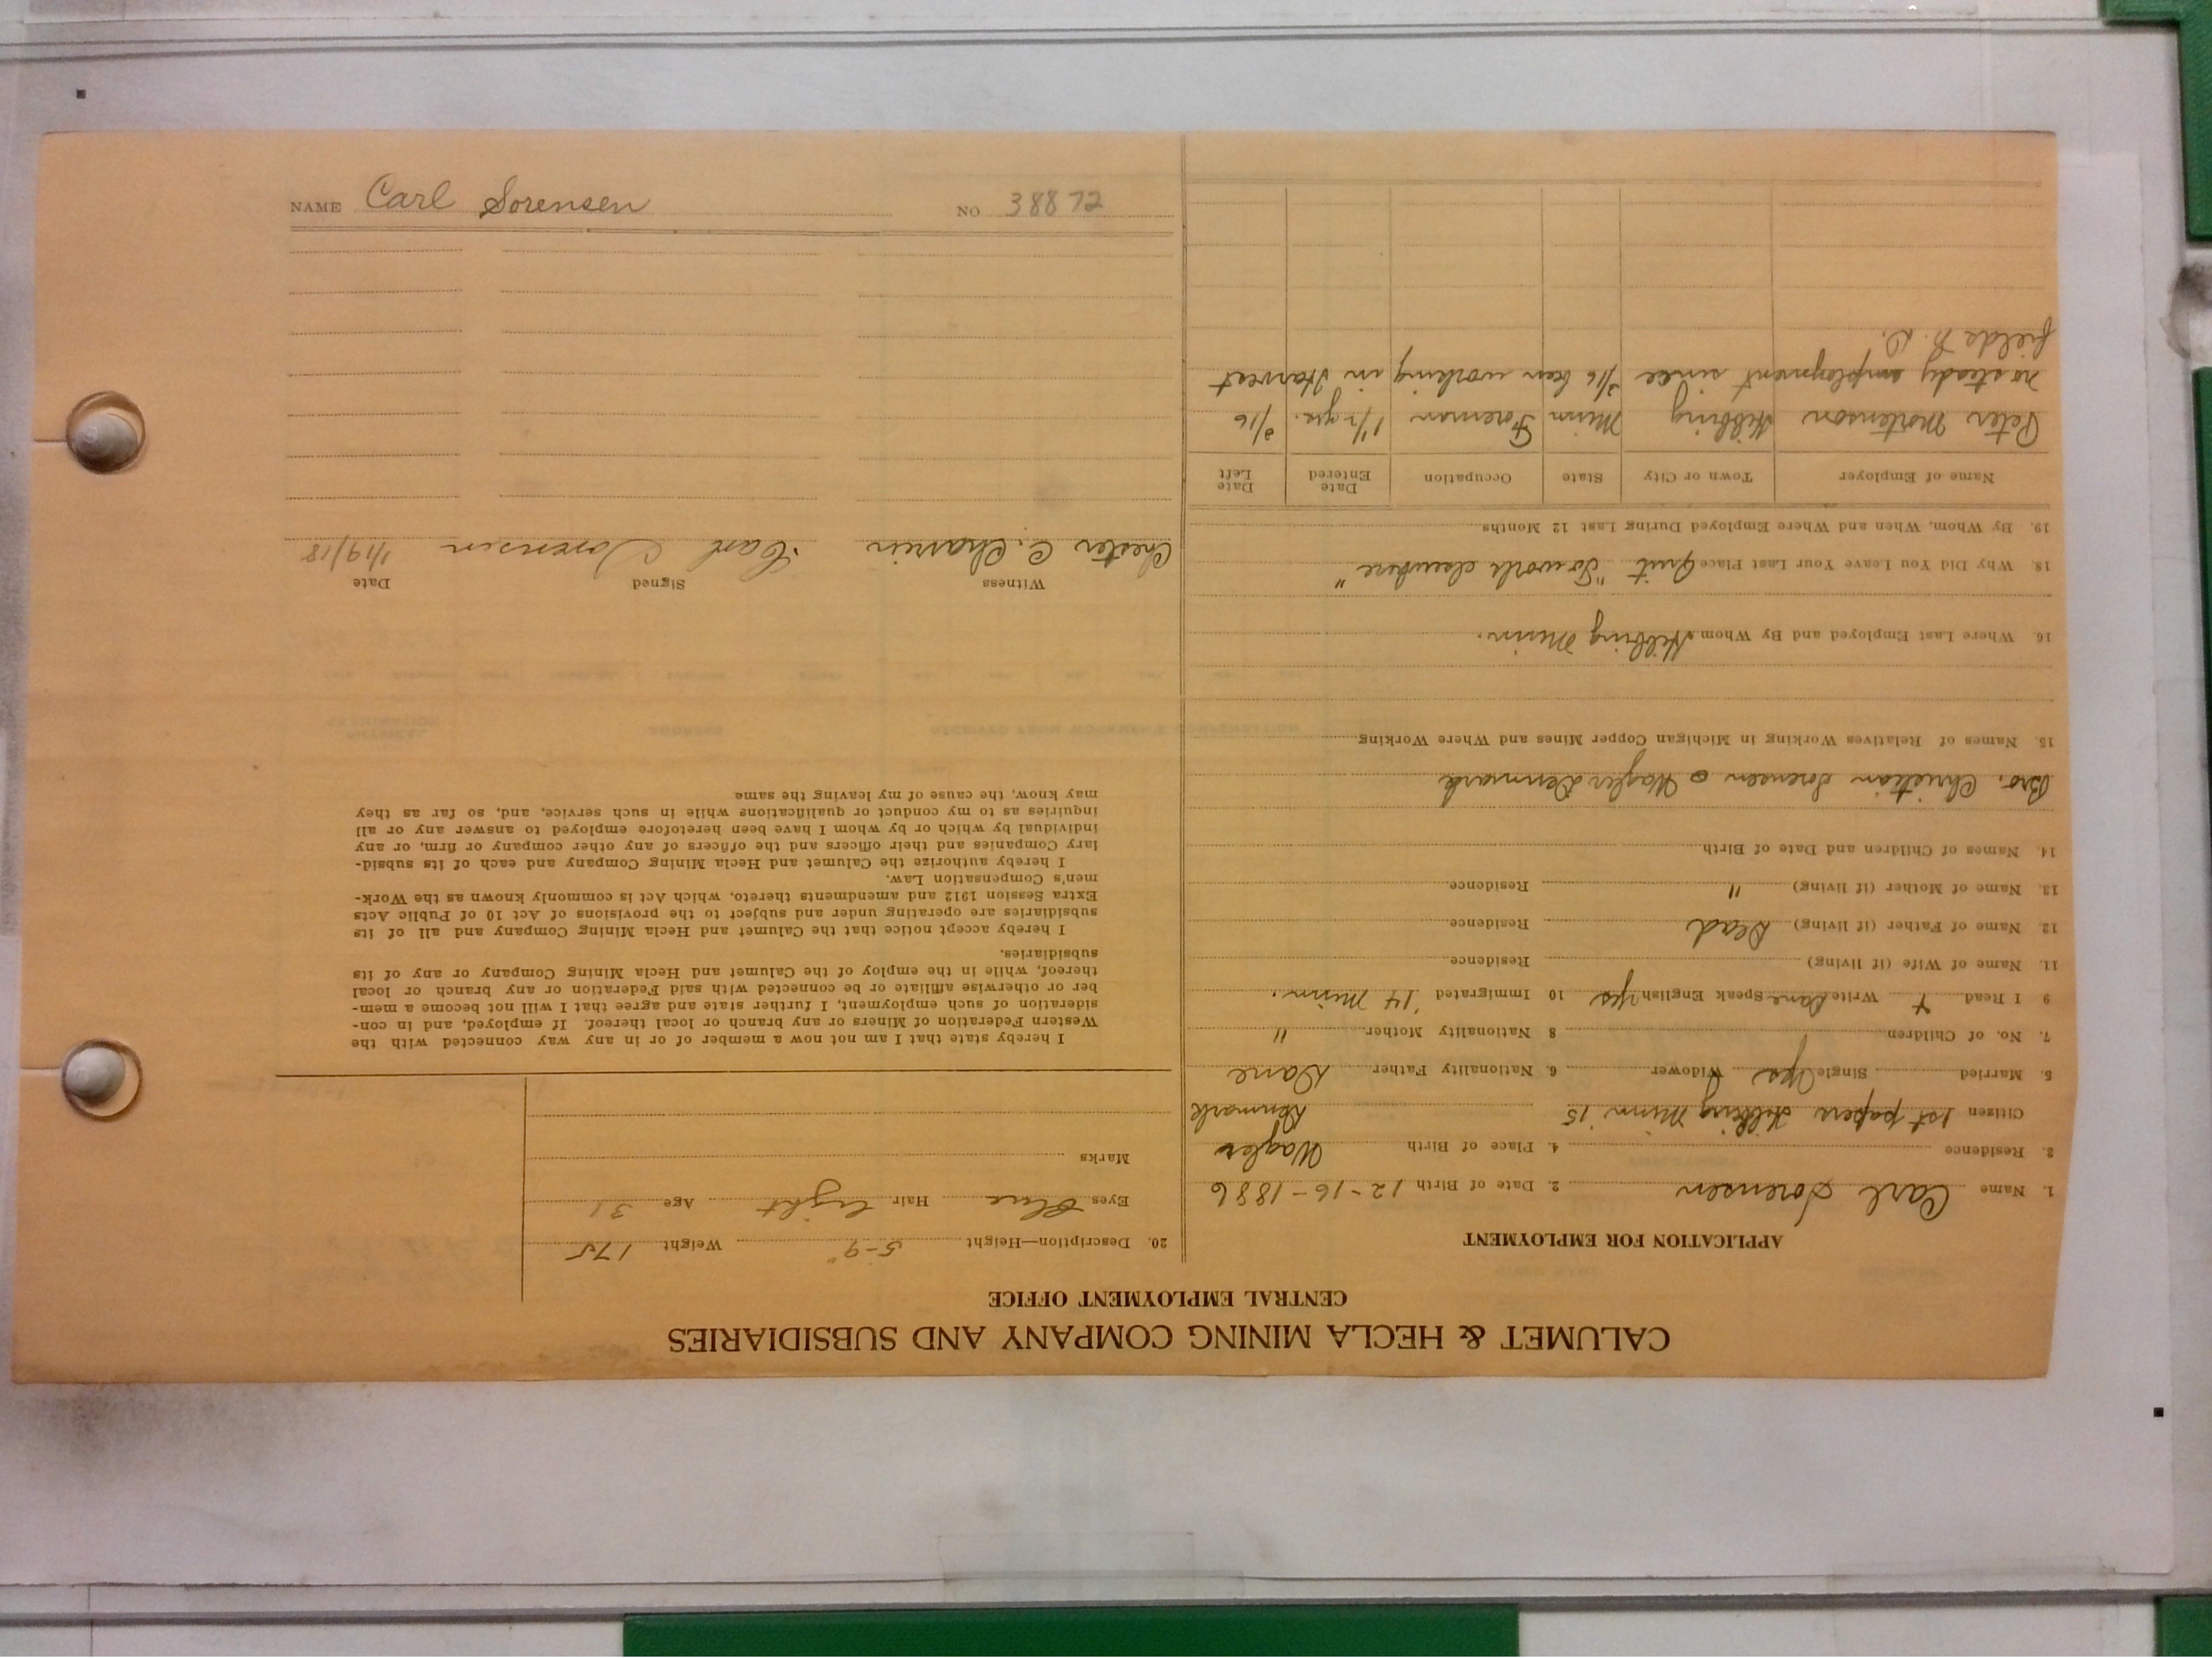 CALUMET & HECLA MINING COMPANY AND SUBSIDIARIES
CENTRAL EMPLOYMENT OFFICE
APPLICATION FOR EMPLOYMENT
1. Name Carl Sorensen 2. Date of Birth 12-16-1886
3. Residence 4. Place of Birth
Citizen 1st papers Hibbing Minn '15 Denmark
5. Married Single Yes Widower 6. Nationality Father Dane
7. No. of Children 8 Nationality Mother "
9 I Read + Write Dane Speak English Yes 10 Immigrated '14 Minn.
11. Name of Wife (if living) Residence
12. Name of Father (if living) Dead Residence
13. Name of Mother (if living) " Residence
14. Names of Children and Date of Birth
Bro. Christian Sorensen Denmark
15. Names of Relatives Working in Michigan Copper Mines and Where Working
16. Where Last Employed and By Whom Hibbing Minn.
18. Why Did You Leave Your Last Place Quit "To work elsewhere"
19. By Whom, When and Where Employed During Last 12 Months
Name of Employer Town or City State Occupation Date Entered Date Left
Peter Mortenson Hibbing Minn Foreman 1 1/2 yrs. 3/16
no steady employment since 3/16 been working in Harvest
fields N. D.
20. Description—Height 5-9" Weight 175
Eyes Blue Hair light Age 31
Marks
I hereby state that I am not now a member of or in any way connected with the
Western Federation of Miners or any branch or local thereof. If employed, and in con-
sideration of such employment, I further state and agree that I will not become a mem-
ber or otherwise affiliate or be connected with said Federation or any branch or local
thereof, while in the employ of the Calumet and Hecla Mining Company or any of its
subsidiaries.
I hereby accept notice that the Calumet and Hecla Mining Company and all of its
subsidiaries are operating under and subject to the provisions of Act 10 of Public Acts
Extra Session 1912 and amendments thereto, which Act is commonly known as the Work-
men's Compensation Law.
I hereby authorize the Calumet and Hecla Mining Company and each of its subsid-
iary Companies and their officers and the officers of any other company or firm, or any
individual by which or by whom I have been heretofore employed to answer any or all
inquiries as to my conduct or qualifications while in such service, and, so far as they
may know, the cause of my leaving the same
Witness Signed Date
Chester C. Carl Sorensen 1/19/18
NAME Carl Sorensen NO 38872